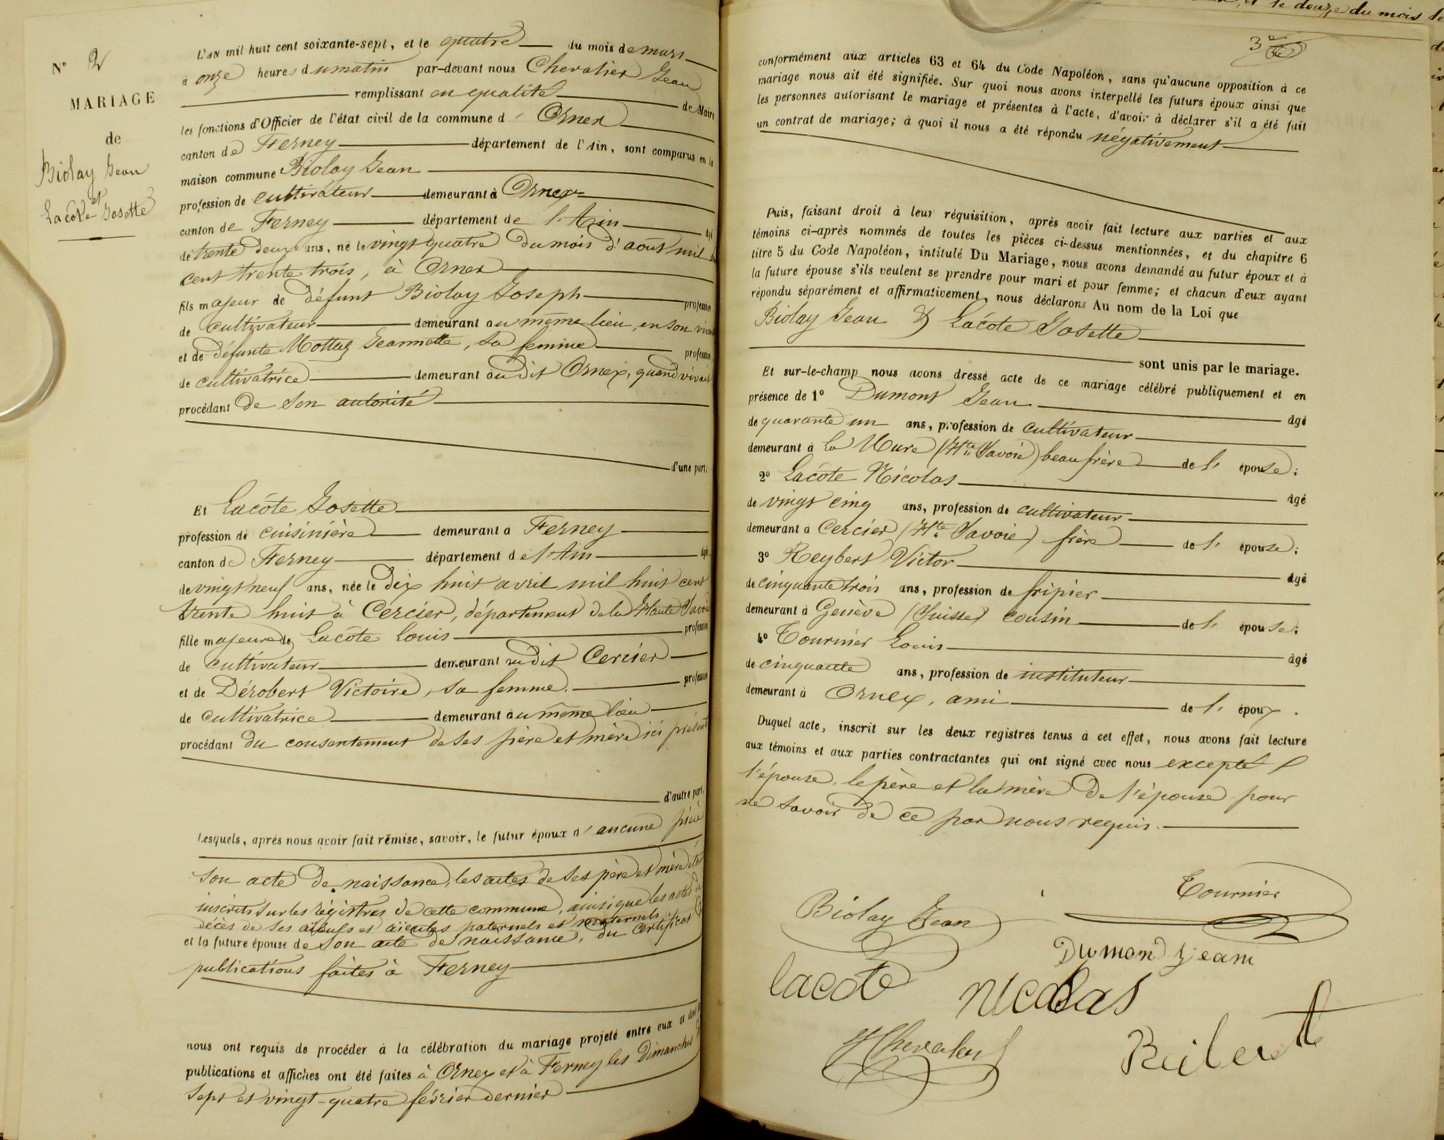 N° 2
MARIAGE
de
Biolay Jean
et
Lacôte Josette
L'AN mil huit cent soixante-sept, et le quatre du mois de mars
à onze heures du matin par-devant nous Chevalier Jean
remplissant en qualité de Maire
les fonctions d'Officier de l'état civil de la commune d' Ornex
canton de Ferney département de l'Ain, sont comparus en la
maison commune Biolay Jean
profession de cultivateur demeurant à Ornex
canton de Ferney département de l'Ain âgé
de trente deux ans, né le vingt quatre du mois d'août mil
cent trente trois, à Ornex
fils majeur de défunt Biolay Joseph profession
de cultivateur demeurant au même lieu, en son vivant
et de défunte Mottaz Jeannette, sa femme profession
de cultivatrice demeurant au dit Ornex, quand vivait
procédant de son autorité
d'une part.
Et Lacôte Josette
profession de cuisinière demeurant à Ferney
canton de Ferney département de l'Ain âgé
de vingt neuf ans, née le dix huit avril mil huit cent
trente huit à Cercier, département de la Haute Savoie
fille majeure de Lacôte Louis profession
de cultivateur demeurant au dit Cercier
et de Dérobert Victoire, sa femme. profession
de cultivatrice demeurant au même lieu
procédant du consentement de ses père et mère ici présents
d'autre part.
Lesquels, après nous avoir fait remise, savoir, le futur époux d'aucune pièce
son acte de naissance, les actes de ses père et mère étant
inscrits sur les régistres de cette commune, ainsi que les actes de
décès de ses aïeuls et aïeules paternels et maternels
et la future épouse de son acte de naissance, du certificat de
publications faites à Ferney
nous ont requis de procéder à la célébration du mariage projeté entre eux et dont les
publications et affiches ont été faites à Ornex et à Ferney les Dimanches
sept et vingt-quatre février dernier
3e
conformément aux articles 63 et 64 du Code Napoléon, sans qu'aucune opposition à ce
mariage nous ait été signifiée. Sur quoi nous avons interpellé les futurs époux ainsi que
les personnes autorisant le mariage et présentes à l'acte, d'avoir à déclarer s'il a été fait
un contrat de mariage; à quoi il nous a été répondu négativement
Puis, faisant droit à leur réquisition, après avoir fait lecture aux parties et aux
témoins ci-après nommés de toutes les pièces ci-dessus mentionnées, et du chapitre 6
titre 5 du Code Napoléon, intitulé Du Mariage, nous avons demandé au futur époux et à
la future épouse s'ils veulent se prendre pour mari et pour femme; et chacun d'eux ayant
répondu séparément et affirmativement, nous déclarons Au nom de la Loi que
Biolay Jean & Lacôte Josette
sont unis par le mariage.
Et sur-le-champ nous avons dressé acte de ce mariage célébré publiquement et en
présence de 1° Dumont Jean âgé
de quarante un ans, profession de cultivateur
demeurant à la Mure (Hte Savoie) beau frère de l' épouse;
2° Lacôte Nicolas âgé
de vingt cinq ans, profession de cultivateur
demeurant à Cercier (Hte Savoie) frère de l' épouse;
3° Reybert Victor âgé
de cinquante trois ans, profession de fripier
demeurant à Genève (Suisse) cousin de l' épouse;
4° Tournier Louis âgé
de cinquante ans, profession de instituteur
demeurant à Ornex, ami de l' époux.
Duquel acte, inscrit sur les deux registres tenus à cet effet, nous avons fait lecture
aux témoins et aux parties contractantes qui ont signé avec nous excepté
l'épouse, le père et la mère de l'épouse pour
ne savoir de ce par nous requis.
Biolay Jean
Tournier
Dumond Jean
lacote nicolas
Chevalier